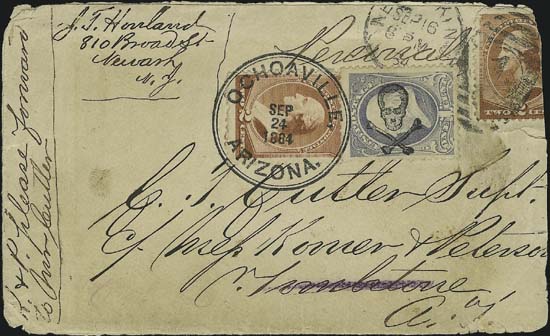 J. T. Howland
810 Broad St
Newark
N. J.
SEP 16
OCHOAVILLE,
SEP
24
1884
ARIZONA.
C. T. Cutler Supt.
c/o Mess Komer & Peterson
Tombstone
A. T.
K & P. please forward
to Mr Cutler
TWO